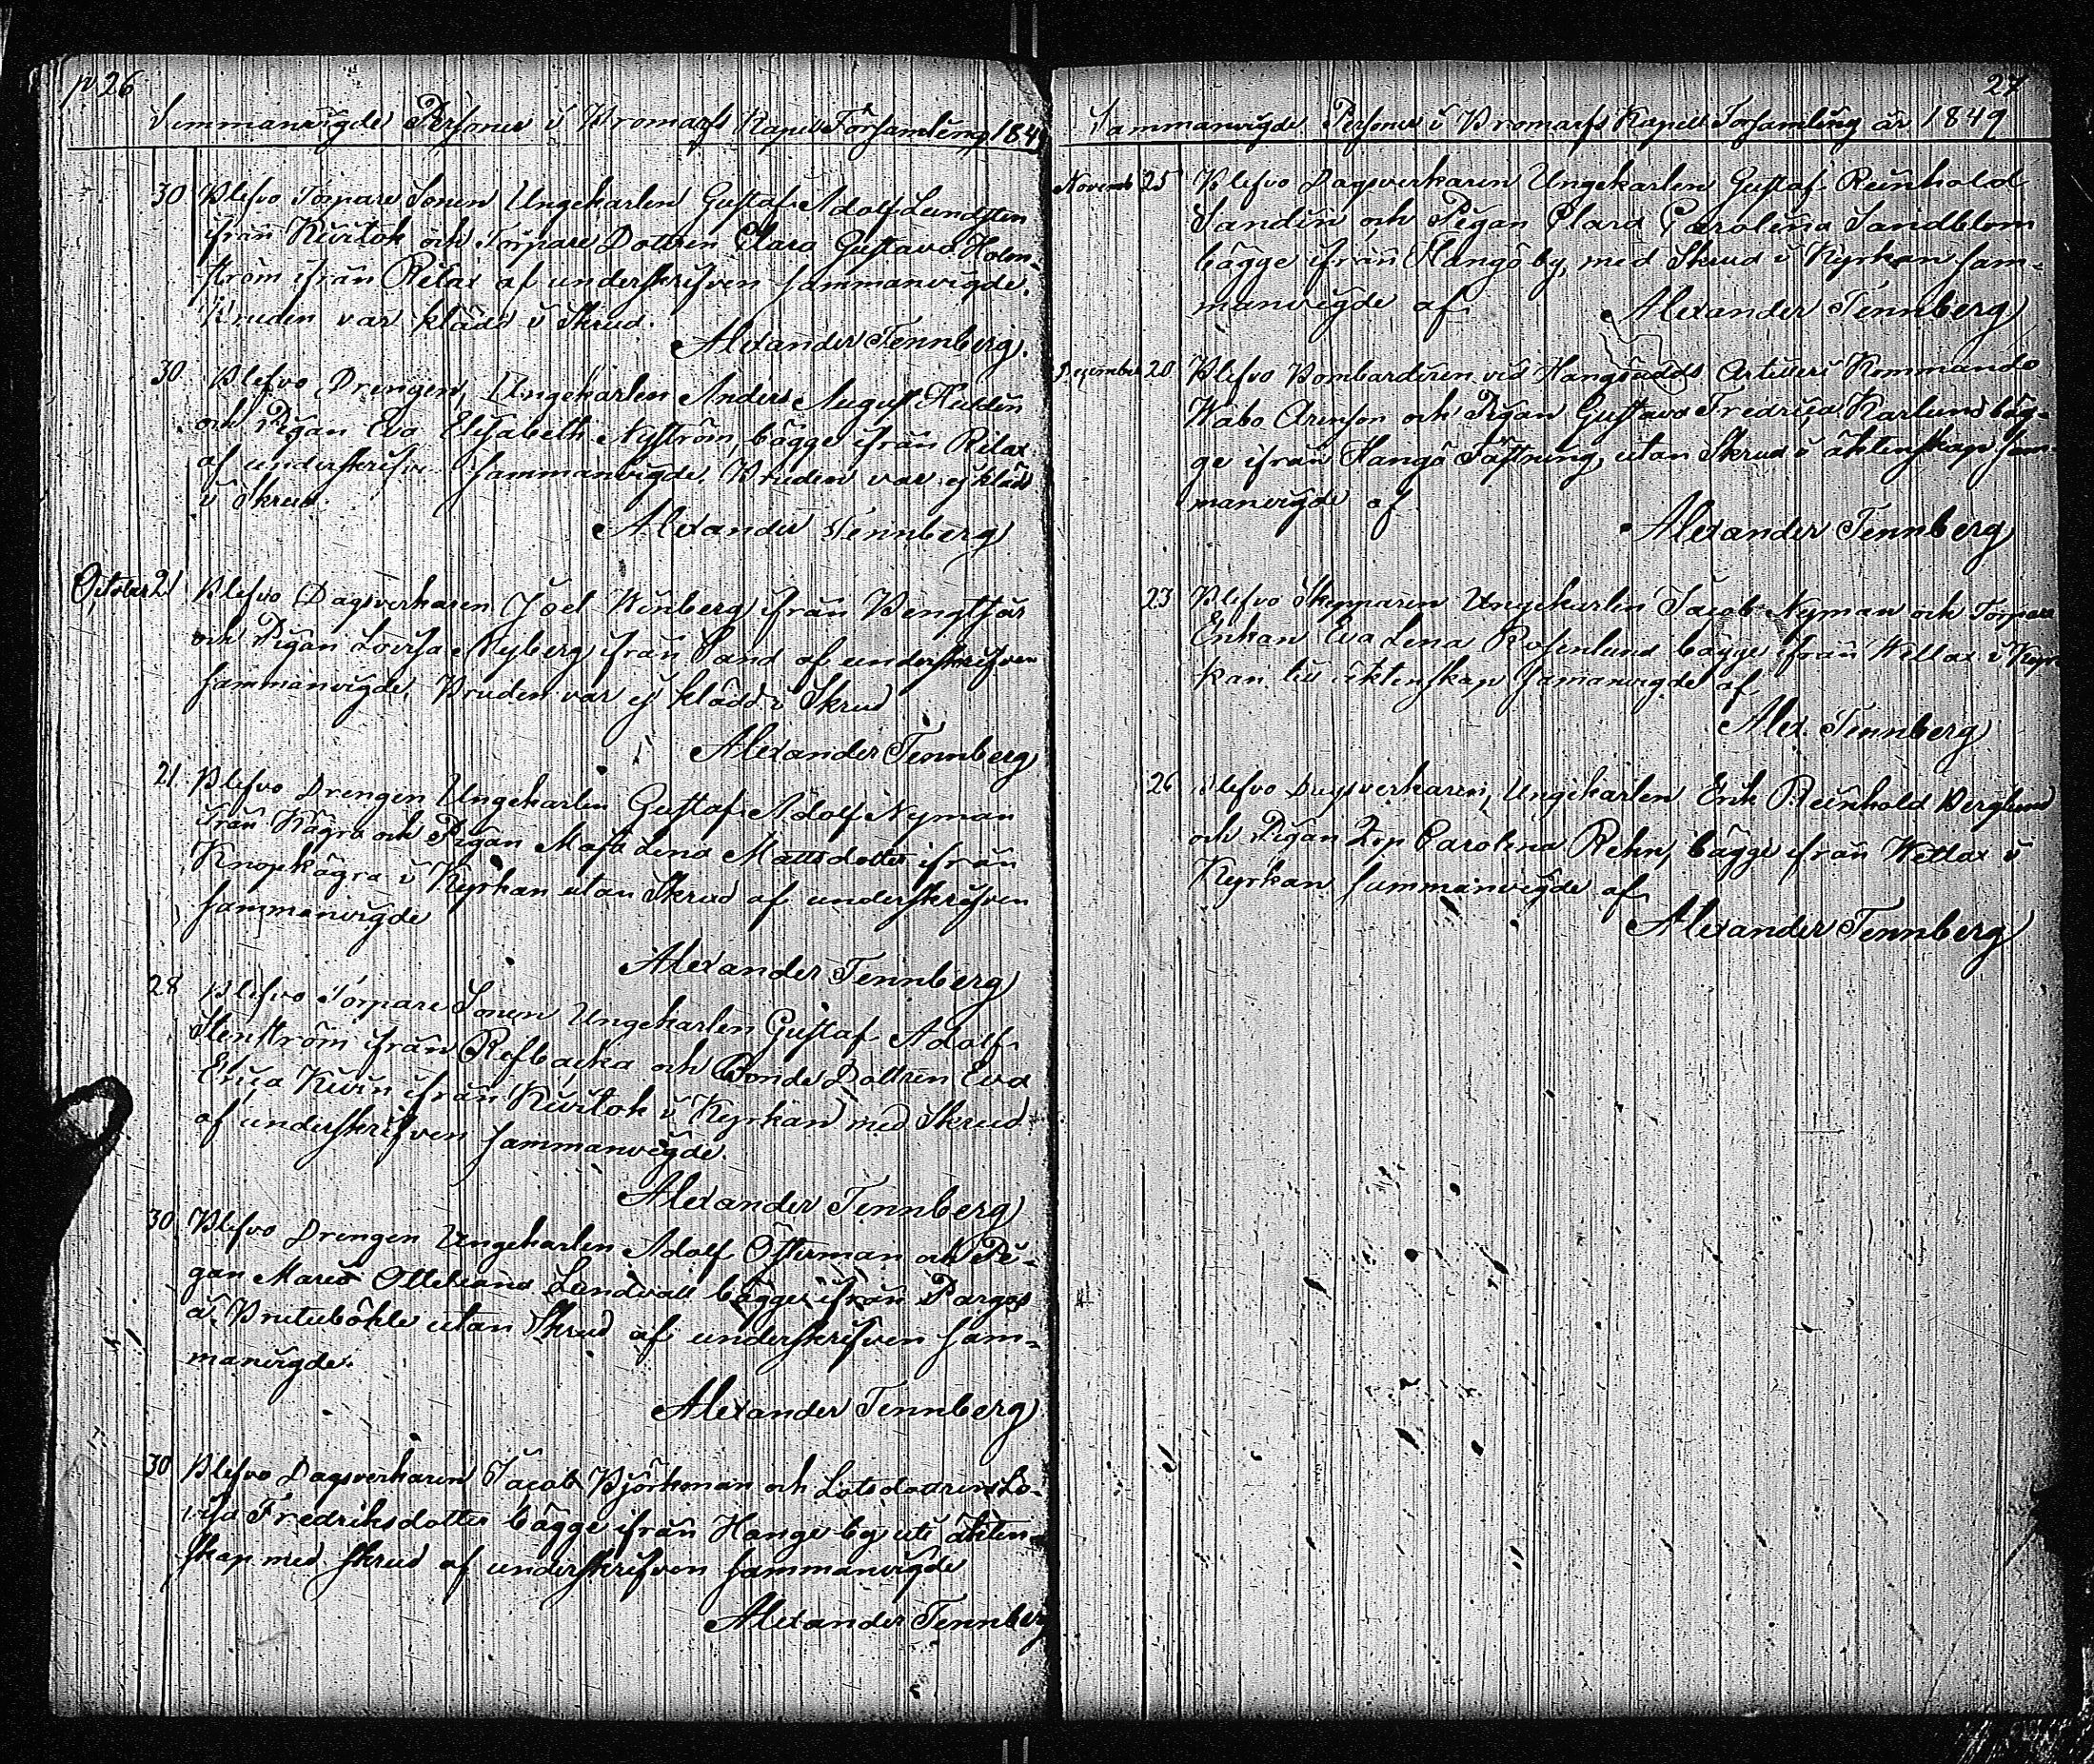 p 26
Sammanvigde Personer i Bromarfs Kapell Församling 1849
30 Blefvo Torpare Sonen Ungekarlen Gustaf Adolf Lundsten
ifrån Kivitok och Torpare Dottren Clara Gustava Holm-
ström ifrån Rilax af underskrifven sammanvigde.
Bruden var klädd i Skrud.
Alexander Tennberg.
30 Blefvo Drengen, Ungekarlen Anders August
och Pigan Eva Elisabeth Nyström, bägge ifrån Rilax
af underskrifv. sammanvigde. Bruden var ej kläd
i Skrud.
Alexander Tennberg
October 21 Blefvo Dagsverkaren Joel Winberg ifrån Bengtsår
och Pigan Lovisa Nyberg ifrån Sand af underskrifven
sammanvigde, Bruden var ej klädd i Skrud
Alexander Tennberg
21. Blefvo Drengen Ungekarlen Gustaf Adolf Nyman
från Kägra och Pigan Maja Lena Mattsdotter ifrån
Knopkägra i Kyrkan utan Skrud af underskrifven
sammanvigde
Alexander Tennberg
28 Blefvo Torpare Sonen Ungekarlen Gustaf Adolf
Stenström ifrån Refbacka och Bonde Dottren Eva
Erica ifrån Kivitok i Kyrkan med Skrud
af underskrifven sammanvigde.
Alexander Tennberg
30 Blefvo Drengen Ungekarlen Adolf Österman och Pi-
gan Maria Ottiliana Lundvall bägge ifrån Pargas
å, utan Skrud af underskrifven sam-
manvigde.
Alexander Tennberg
30 Blefvo Dagsverkaren Jacob Björkman och Lotsdottren Lo-
visa Fredriksdotter bägge ifrån Hangö by uti äkten-
skap med skrud af underskrifven sammanvigde
Alexander Tennberg
27
Sammanvigde Personer i Bromarfs Kapell Församling år 1849
Novemb 25 Blefvo Dagsverkaren Ungekarlen Gustaf Reinhold
Sandin och Pigan Clara Carolina Sandblom
bägge ifrån Hangö by, med Skrud i Kyrkan sam-
manvigde af
Alexander Tennberg
December 20 Blefvo Bombardiren vid Hangöudds Artilleri Kommando
Wabo Arenson och Pigan Gustava Fredrica Karlund bäg-
ge ifrån Hangö Fästning, utan Skrud i äktenskap sam-
manvigde af
Alexander Tennberg
23 Blefvo Skepparen Ungekarlen Jacob Nyman och Torpare
Enkan Eva Lena Rosenlund bägge ifrån Wettlax i Kyr-
kan till äktenskap samanvigde af
Alex. Tennberg
26 Blefvo Dagsverkaren, Ungekarlen Erik Reinhold Berglund
och Pigan Carolina Rehn, bägge ifrån Wettlax i
Kyrkan sammanvigde af
Alexander Tennberg